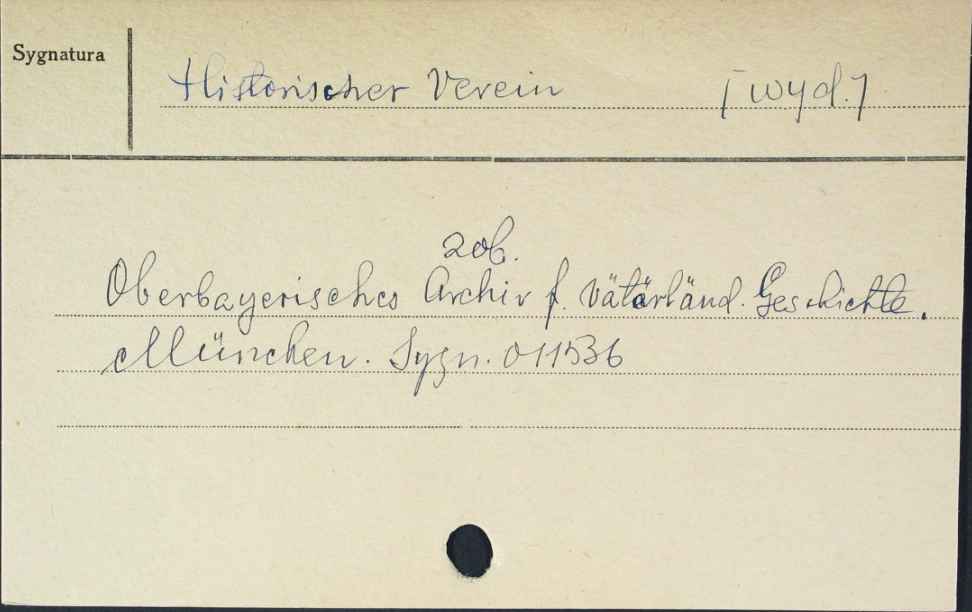 Sygnatura
Historischer Verein [wyd.]
zob.
Oberbayerisches Archiv f. vätärländ. Geschichte.
München. Sygn. 011536